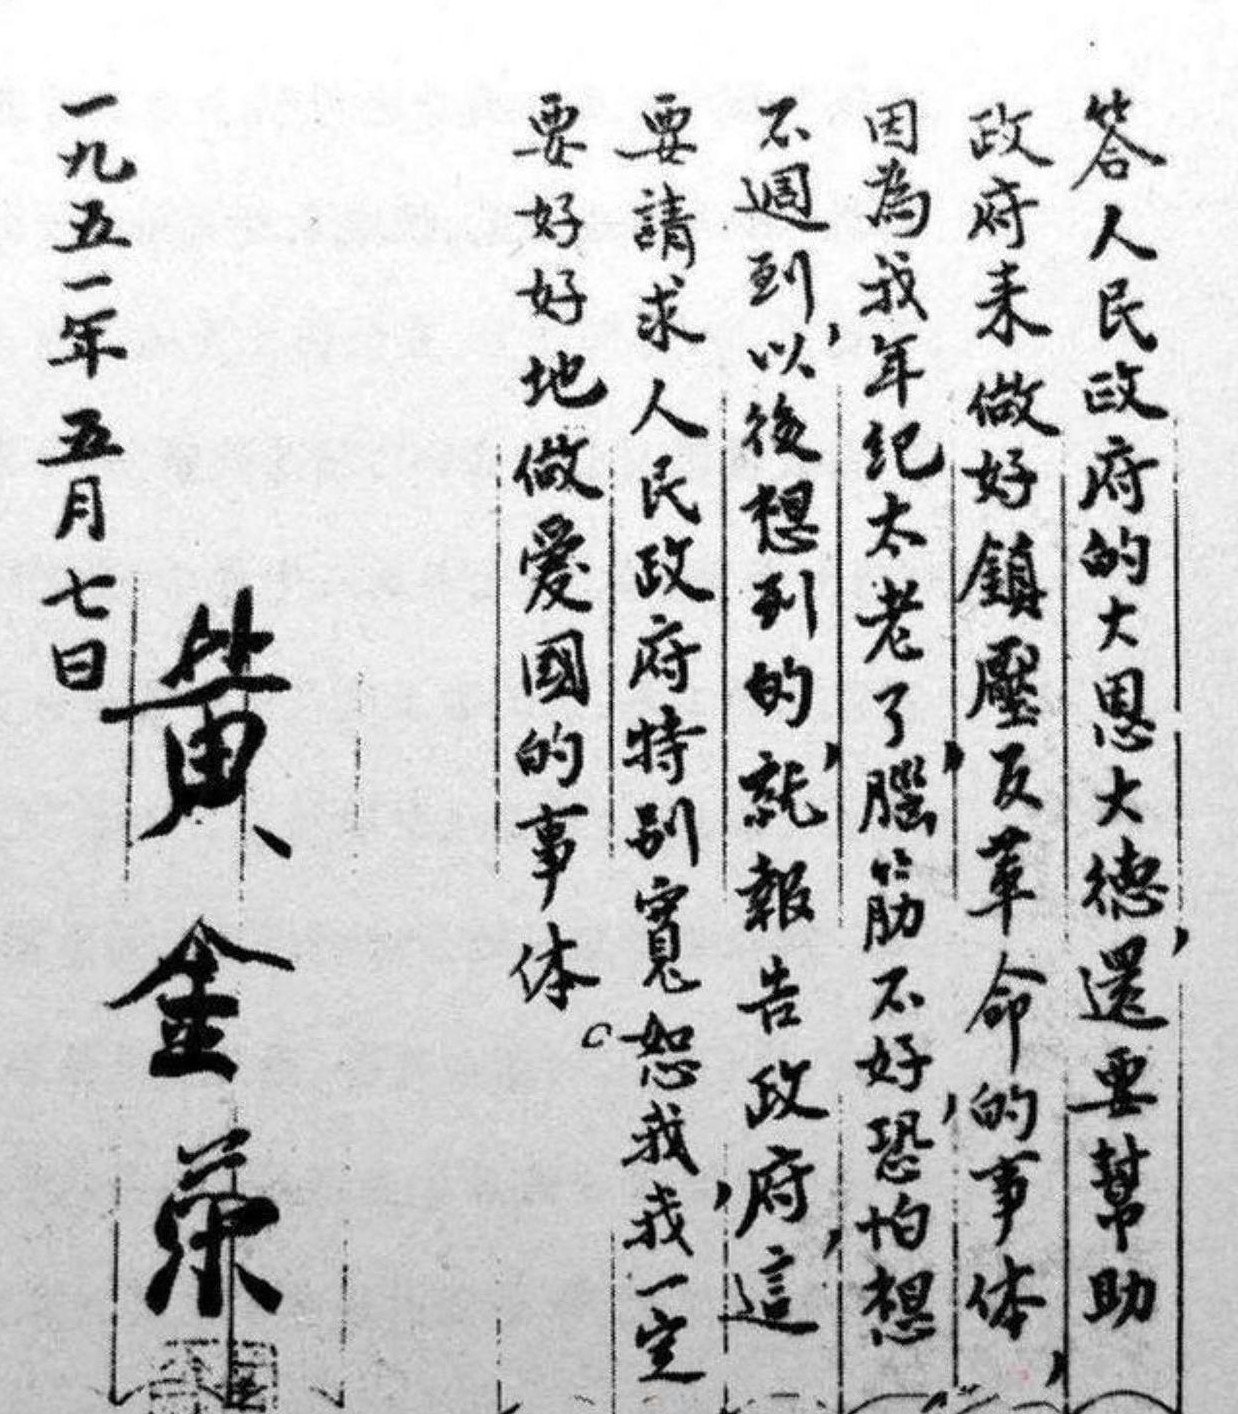 答人民政府的大恩大德,還要幫助
政府来做好鎮壓反革命的事体,
因為我年纪太老了,腦筋不好,恐怕想
不週到,以後想到的,就報告政府,這
要請求人民政府特別寬恕我,我一定
要好好地做愛國的事体。
黄金荣
一九五一年五月七日